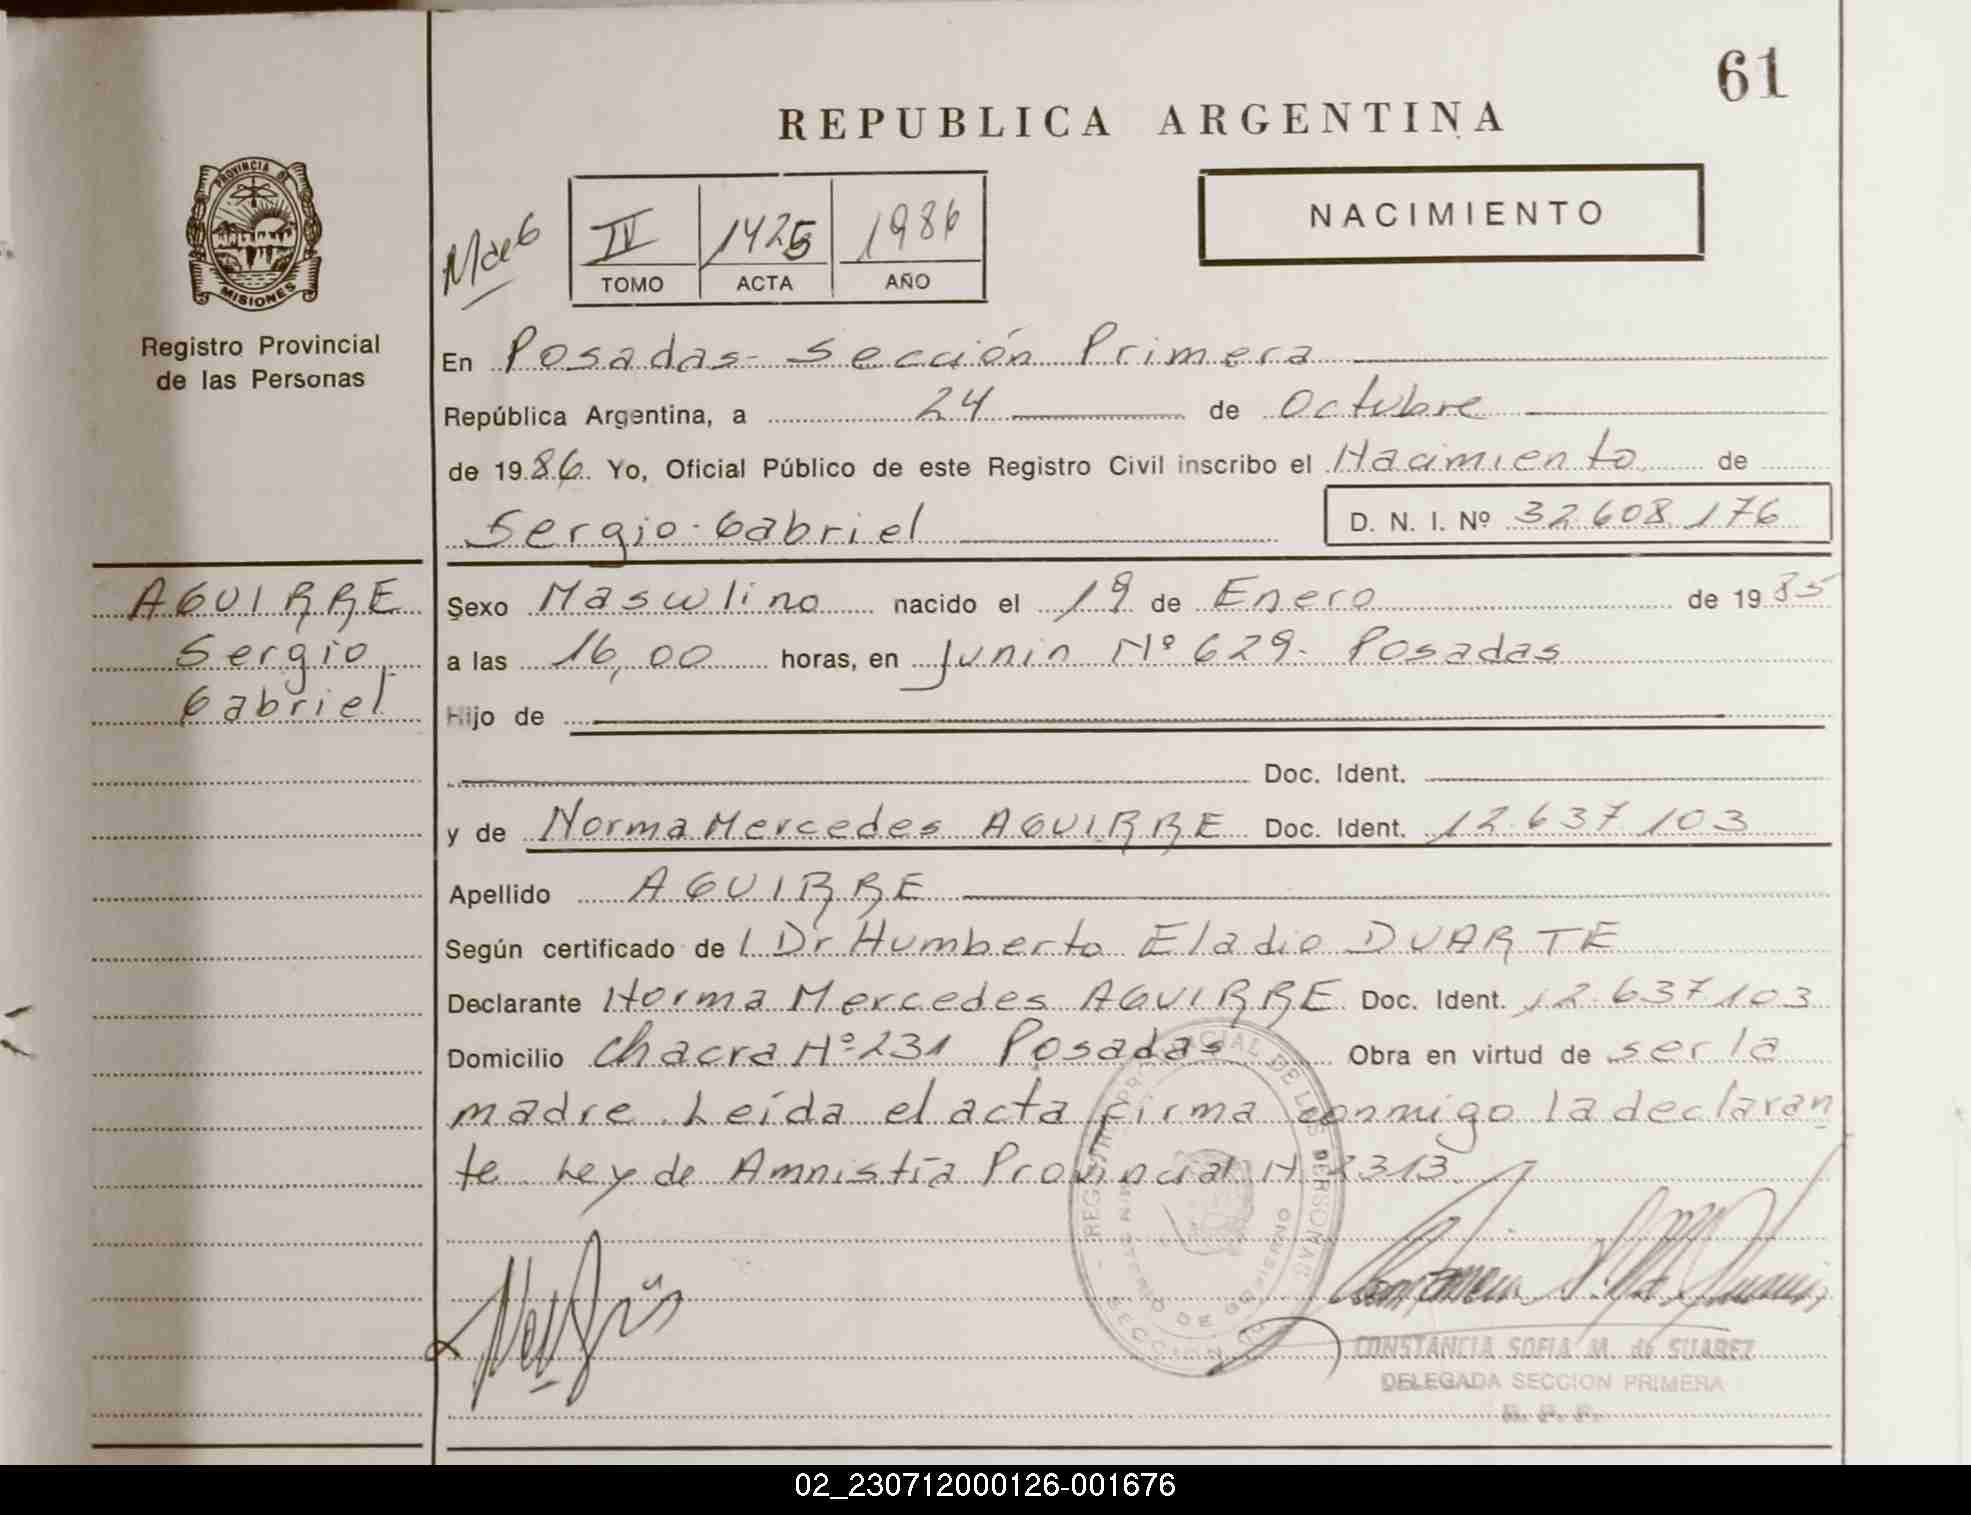 61
REPUBLICA ARGENTINA
PROVINCIA DE
MISIONES
Registro Provincial
de las Personas
IV 1425 1986
TOMO ACTA AÑO
NACIMIENTO
En Posadas - Sección Primera
República Argentina, a 24 de Octubre
de 1986. Yo, Oficial Público de este Registro Civil inscribo el Nacimiento de
Sergio Gabriel D. N. I. Nº 32608176
AGUIRRE
Sergio
Gabriel
Sexo Masculino nacido el 19 de Enero de 1985
a las 16,00 horas, en Junin Nº 629. Posadas
Hijo de
Doc. Ident.
y de Norma Mercedes AGUIRRE Doc. Ident. 12.637103
Apellido AGUIRRE
Según certificado de l Dr Humberto Eladio DUARTE
Declarante Norma Mercedes AGUIRRE Doc. Ident. 12.637103
Domicilio Chacra Nº 231 Posadas Obra en virtud de ser la
madre. Leída el acta firma conmigo la declaran
te Ley de Amnistía Provincial N 2313.
CONSTANCIA SOFIA M. de SUAREZ
DELEGADA SECCION PRIMERA
R. P. P.
02_230712000126-001676